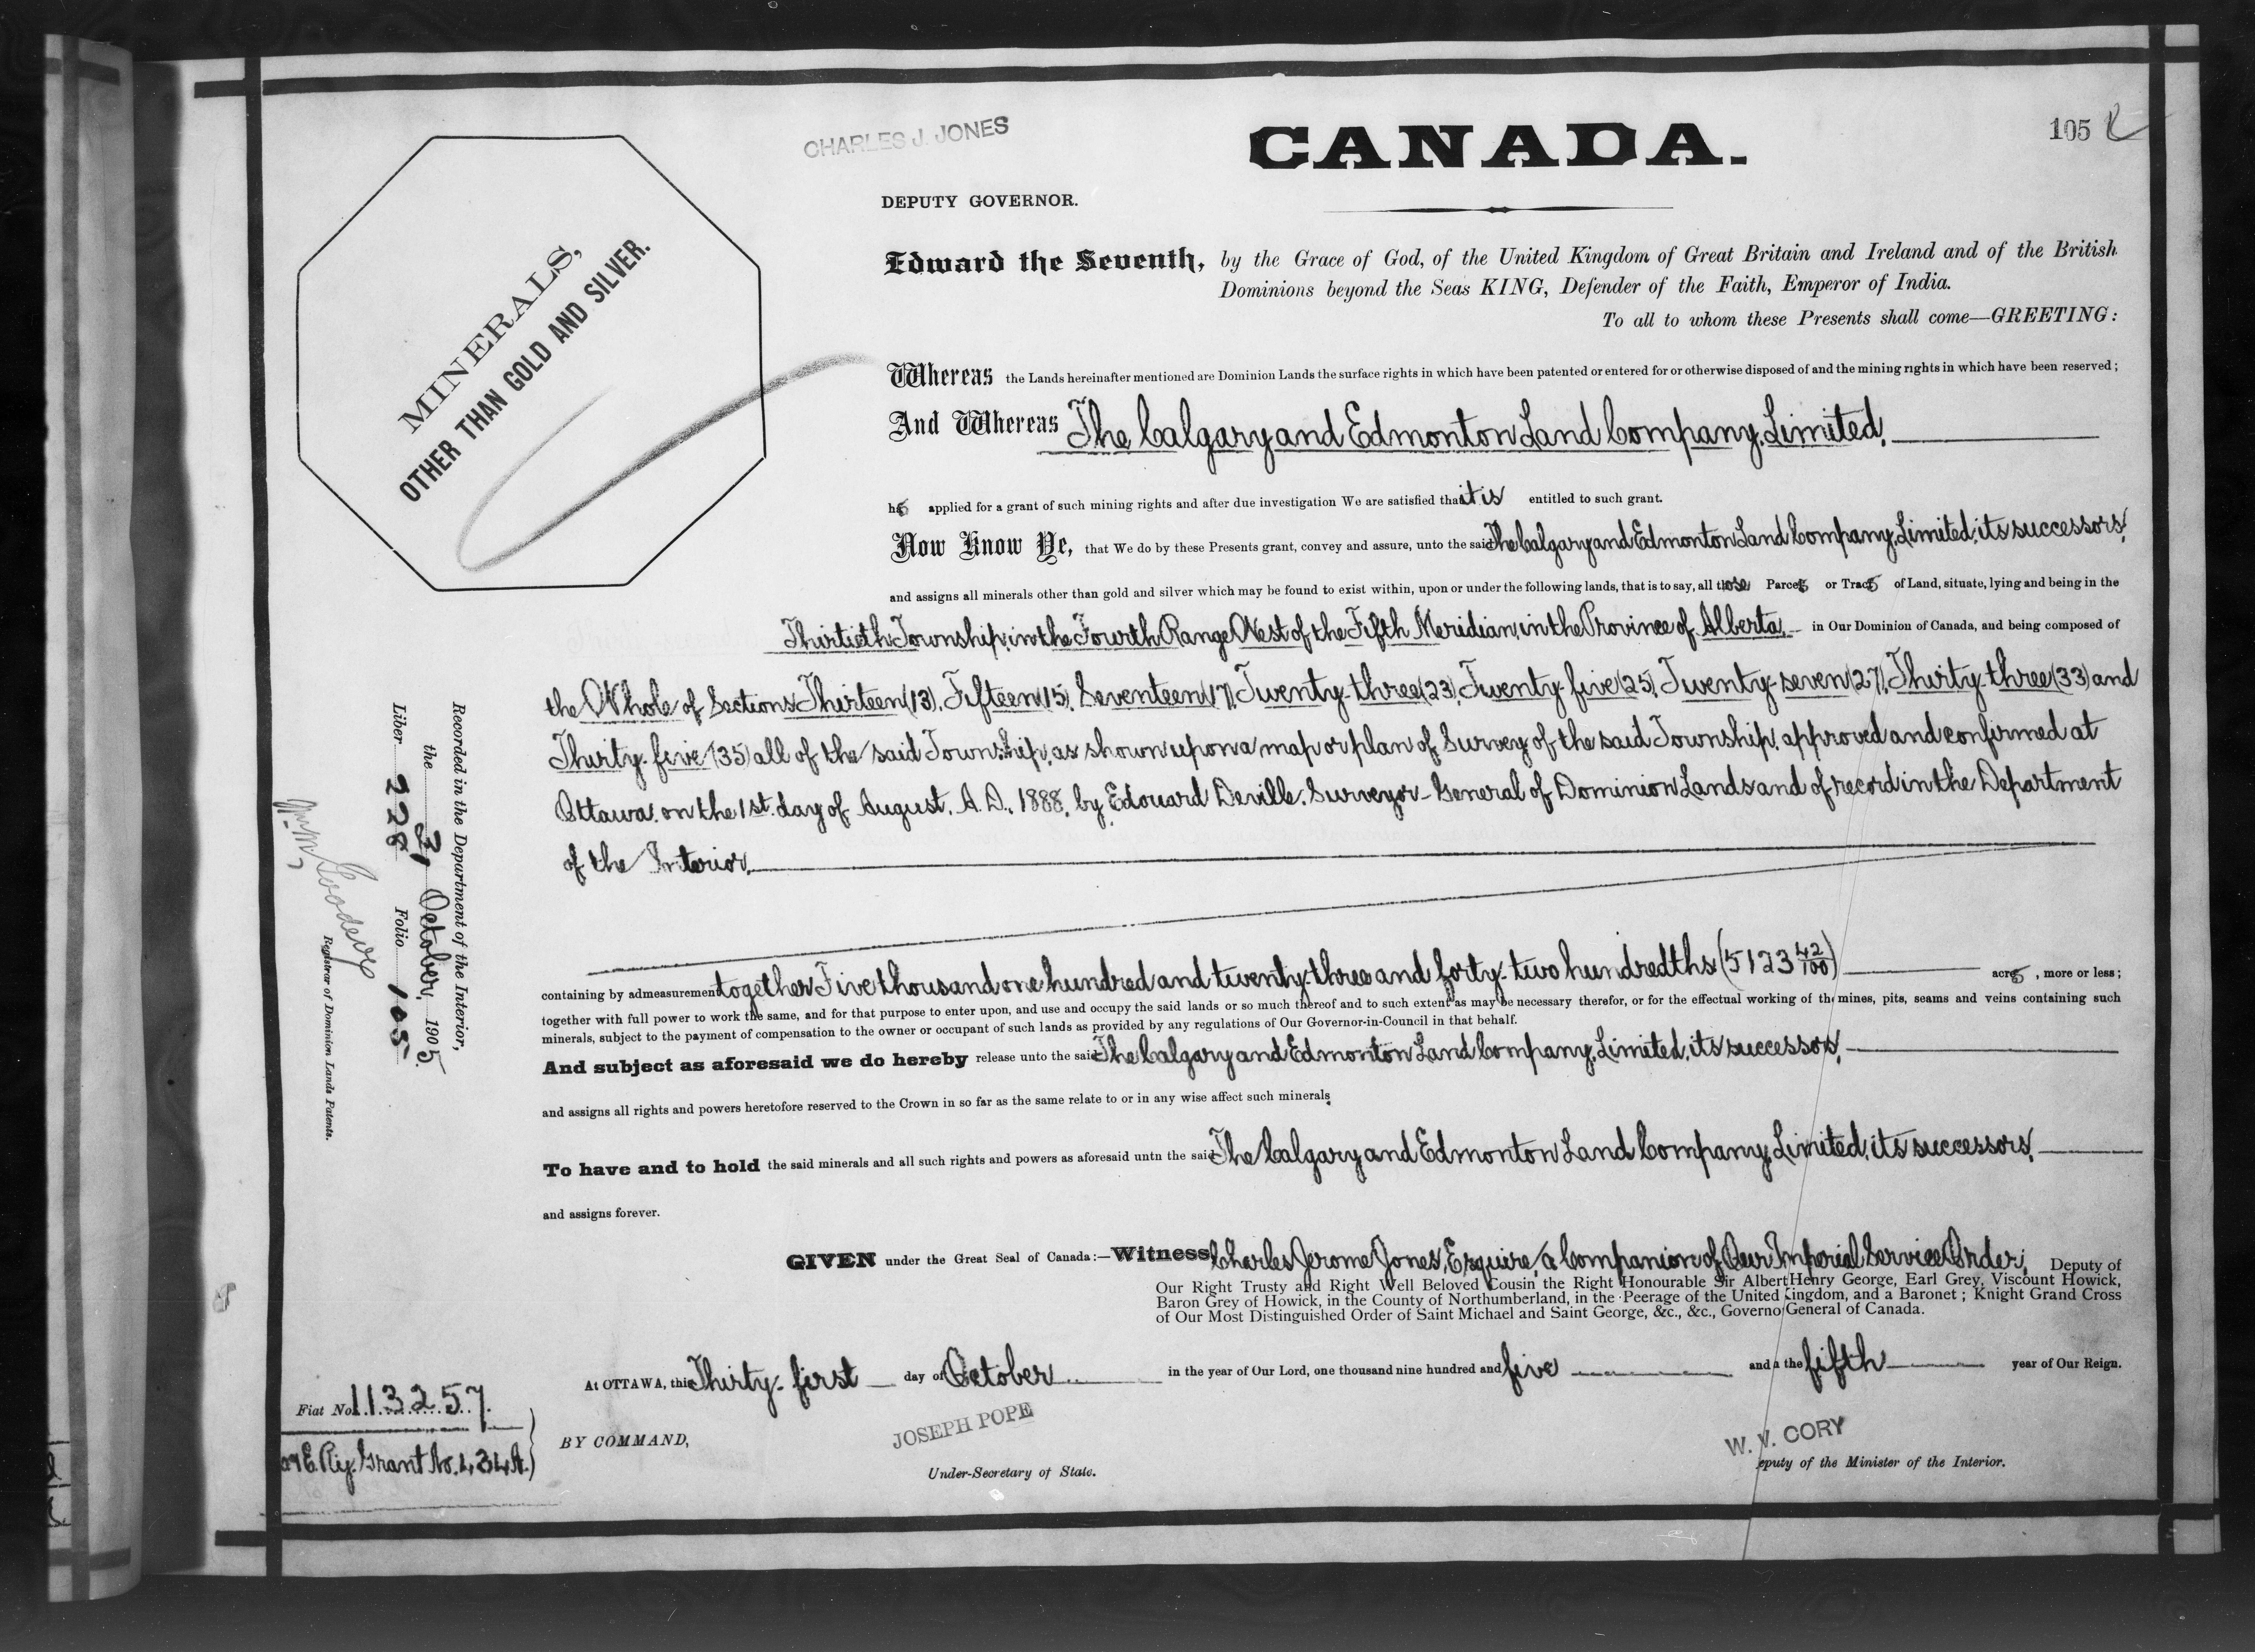 105
CHARLES J. JONES
CANADA.
DEPUTY GOVERNOR.
MINERALS,
OTHER THAN GOLD AND SILVER.
Edward the Seventh, by the Grace of God, of the United Kingdom of Great Britain and Ireland and of the British
Dominions beyond the Seas KING, Defender of the Faith, Emperor of India.
To all to whom these Presents shall come—GREETING:
Whereas the Lands hereinafter mentioned are Dominion Lands the surface rights in which have been patented or entered for or otherwise disposed of and the mining rights in which have been reserved;
And Whereas The Calgary and Edmonton Land Company, Limited,
has applied for a grant of such mining rights and after due investigation We are satisfied that it is entitled to such grant.
Now Know Ye, that We do by these Presents grant, convey and assure, unto the said The Calgary and Edmonton Land Company, Limited, its successors,
and assigns all minerals other than gold and silver which may be found to exist within, upon or under the following lands, that is to say, all those Parcels or Tracts of Land, situate, lying and being in the
Thirtieth Township, in the Fourth Range West of the Fifth Meridian, in the Province of Alberta, in Our Dominion of Canada, and being composed of
the Whole of Sections Thirteen (13), Fifteen (15), Seventeen (17), Twenty-three (23), Twenty-five (25), Twenty-seven (27), Thirty-three (33) and
Thirty-five (35) all of the said Township, as shown upon a map or plan of Survey of the said Township, approved and confirmed at
Ottawa, on the 1st. day of August, A.D., 1888, by Edouard Deville, Surveyor-General of Dominion Lands and of record in the Department
of the Interior,
containing by admeasurement together Five thousand one hundred and twenty-three and forty-two hundredths (5123 42/100) acres, more or less;
together with full power to work the same, and for that purpose to enter upon, and use and occupy the said lands or so much thereof and to such extent as may be necessary therefor, or for the effectual working of the mines, pits, seams and veins containing such
minerals, subject to the payment of compensation to the owner or occupant of such lands as provided by any regulations of Our Governor-in-Council in that behalf.
And subject as aforesaid we do hereby release unto the said The Calgary and Edmonton Land Company, Limited, its successors,
and assigns all rights and powers heretofore reserved to the Crown in so far as the same relate to or in any wise affect such minerals,
To have and to hold the said minerals and all such rights and powers as aforesaid untn the said The Calgary and Edmonton Land Company, Limited, its successors,
and assigns forever.
GIVEN under the Great Seal of Canada:—Witness Charles Jerome Jones, Esquire, a Companion of Our Imperial Service Order, Deputy of
Our Right Trusty and Right Well Beloved Cousin the Right Honourable Sir Albert Henry George, Earl Grey, Viscount Howick,
Baron Grey of Howick, in the County of Northumberland, in the Peerage of the United Kingdom, and a Baronet; Knight Grand Cross
of Our Most Distinguished Order of Saint Michael and Saint George, &c., &c., Governor General of Canada.
At OTTAWA, this Thirty-first day of October in the year of Our Lord, one thousand nine hundred and five and in the fifth year of Our Reign.
BY COMMAND,
JOSEPH POPE
Under-Secretary of State.
W. W. CORY
Deputy of the Minister of the Interior.
Recorded in the Department of the Interior,
the 31 October, 1905.
Liber 228 Folio 105
Registrar of Dominion Lands Patents.
Fiat No. 113257.
E. Ry. Grant No.